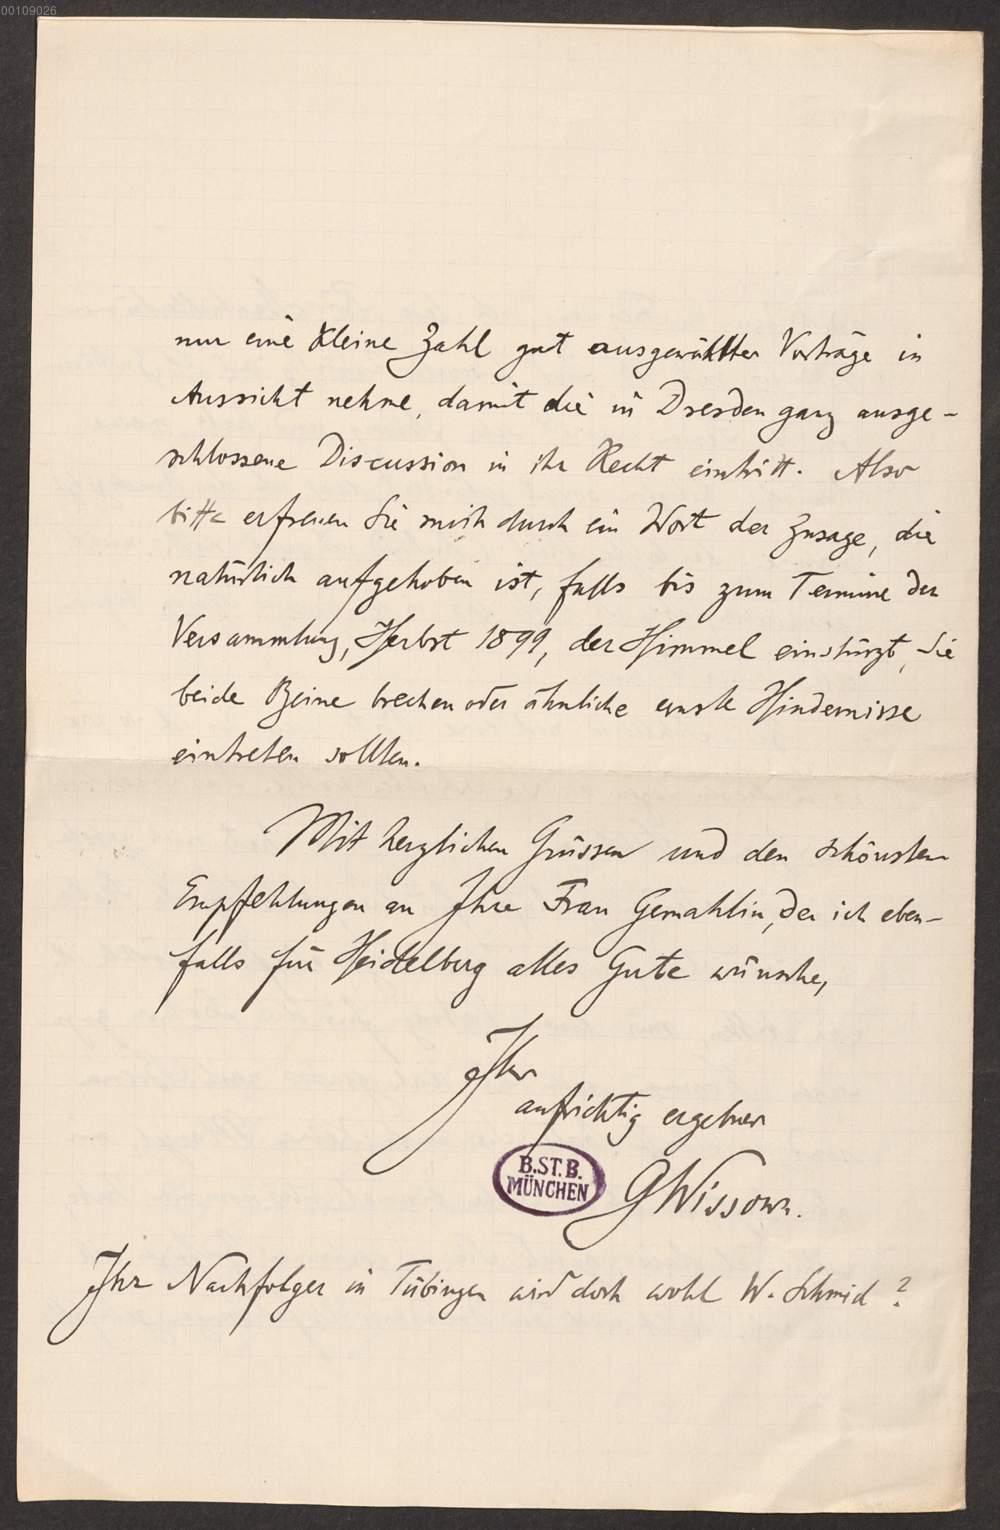 00109026
nur eine kleine Zahl gut ausgewählter Vorträge in
Aussicht nehme, damit die in Dresden ganz ausge-
schlossene Discussion in ihr Recht eintritt. Also
bitte erfreuen Sie mich durch ein Wort der Zusage, die
natürlich aufgehoben ist, falls bis zum Termine der
Versammlung, Herbst 1899, der Himmel einstürzt, Sie
beide Beine brechen oder ähnliche ernste Hindernisse
eintreten sollten.
Mit herzlichen Grüssen und den schönsten
Empfehlungen an Ihre Frau Gemahlin, der ich eben-
falls für Heidelberg alles Gute wünsche,
Ihr
aufrichtig ergebner
B.ST.B.
MÜNCHEN
GWissowa.
Ihr Nachfolger in Tübingen wird doch wohl W. Schmid?